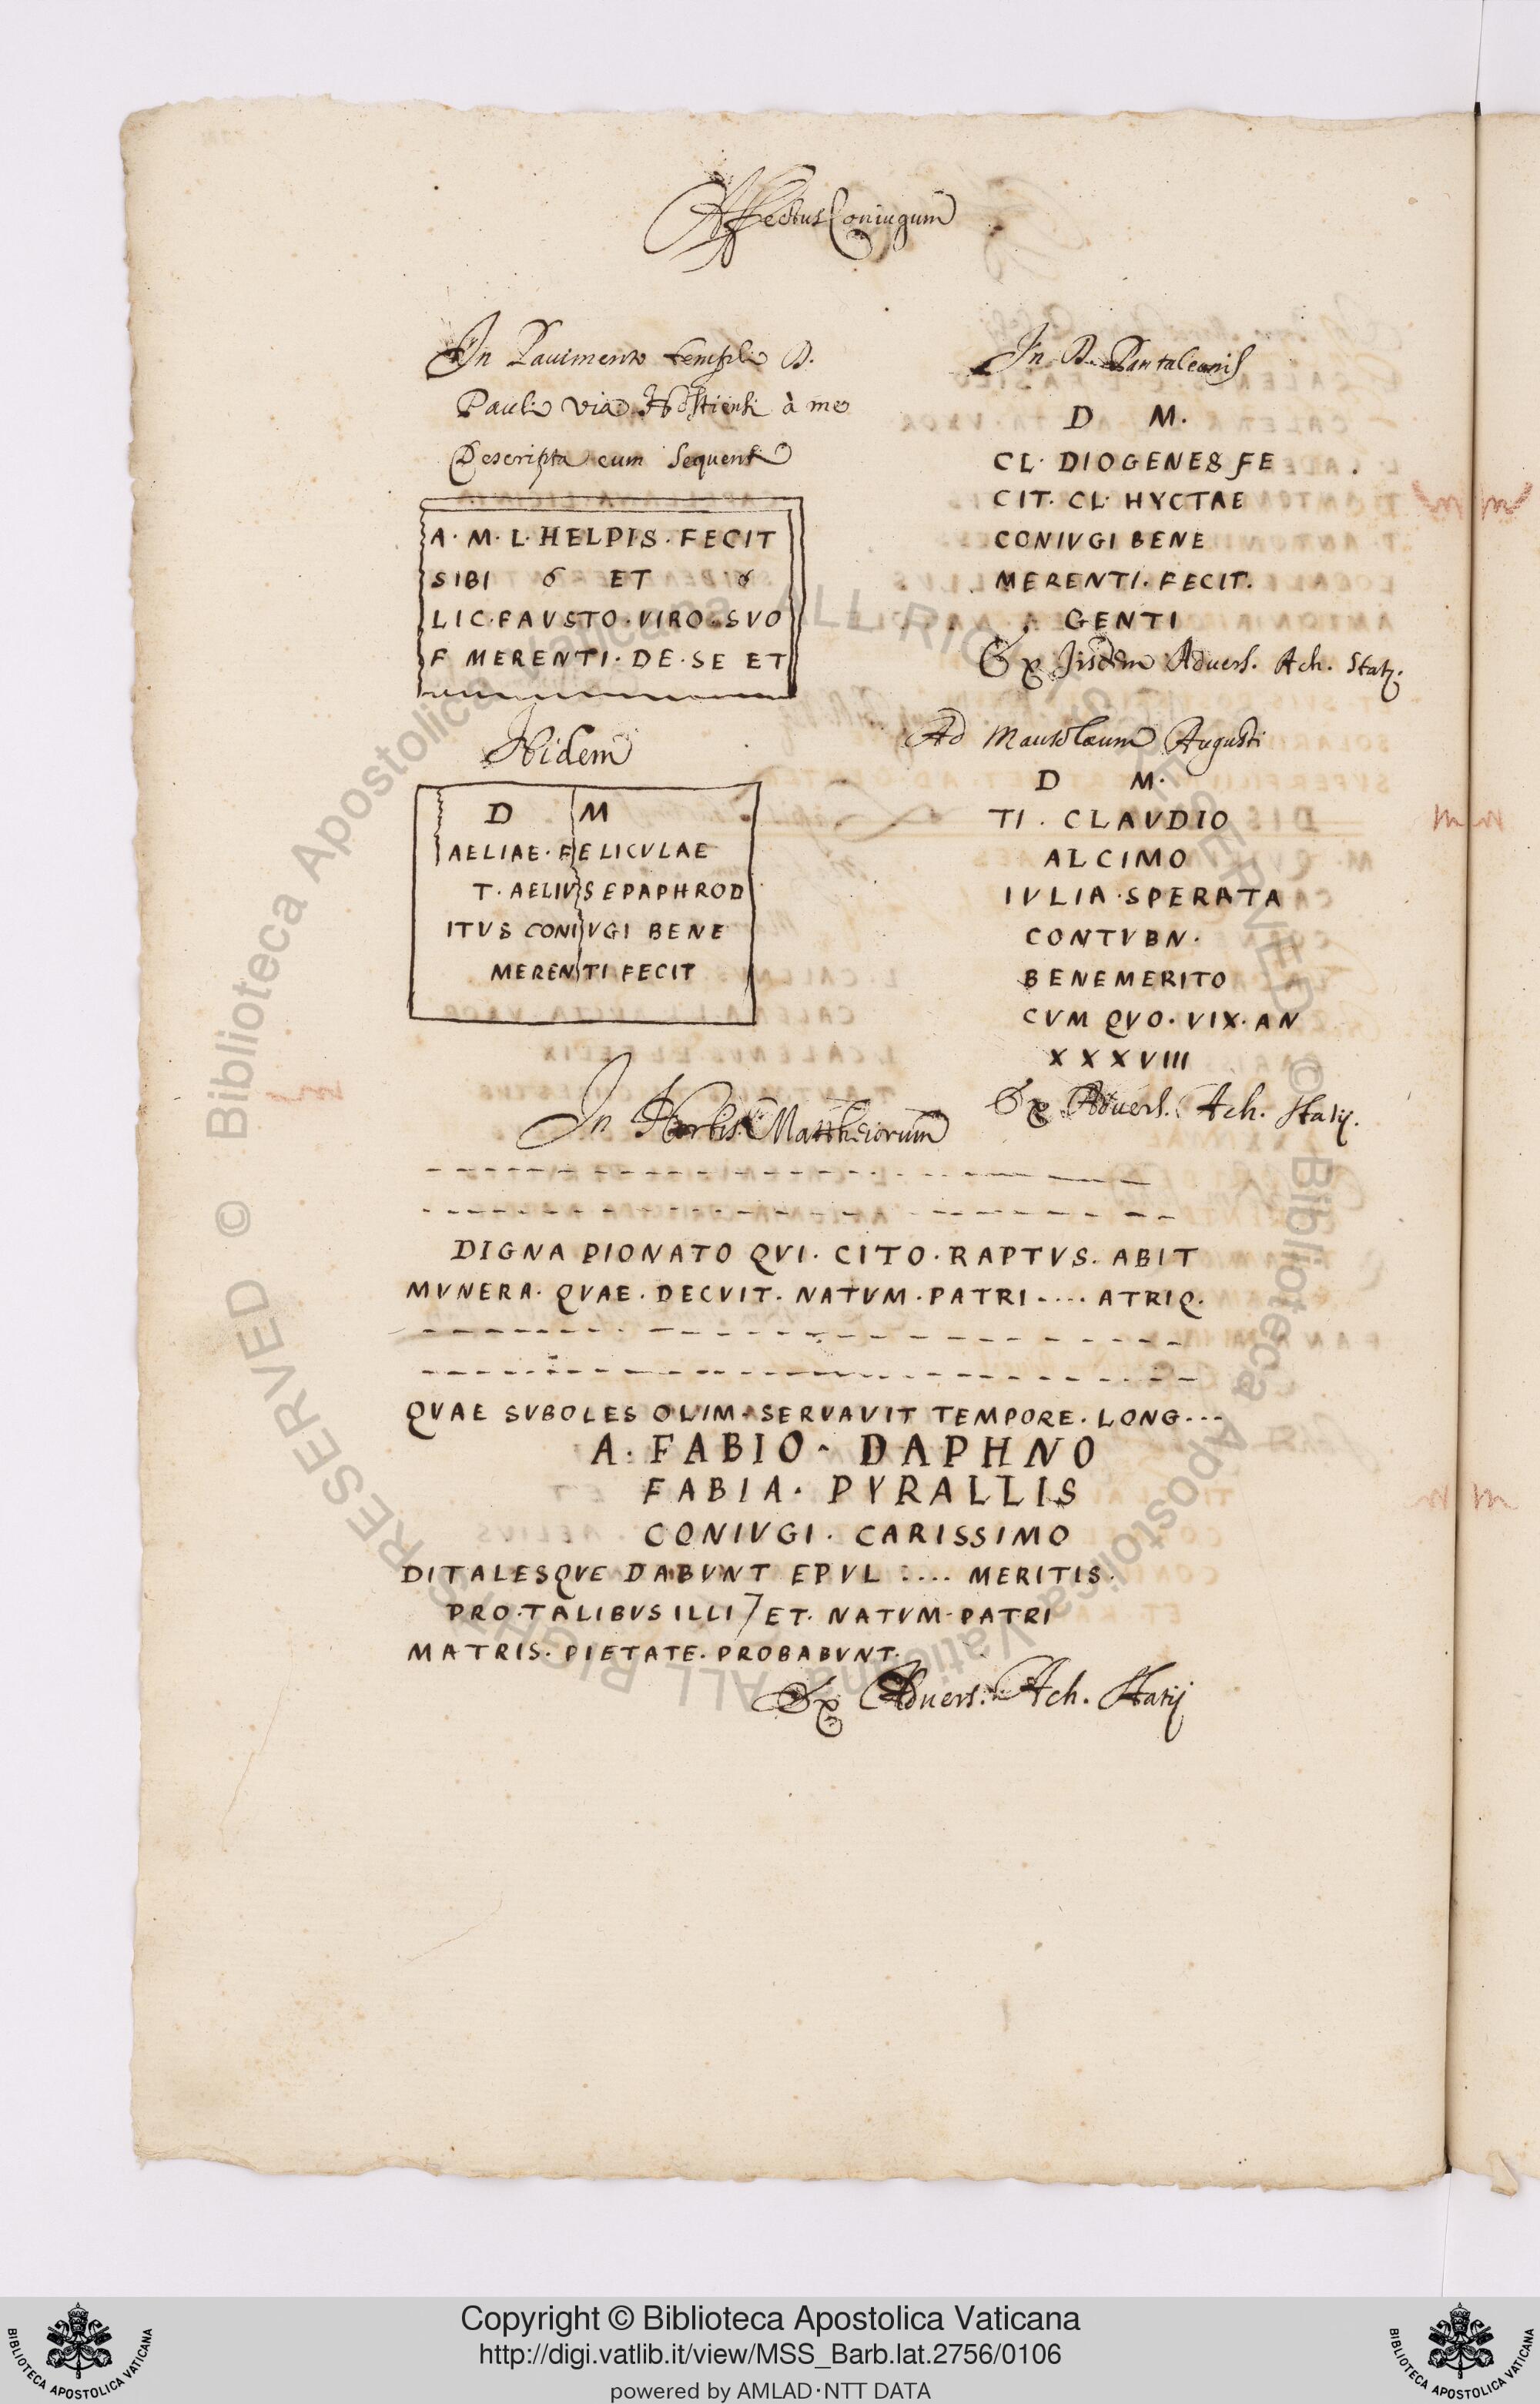 Affectus Coniugum
In Pauimento templi D.
Pauli via Hostiensi à me
Descripta cum sequenti
A · M · L · HELPIS · FECIT
SIBI ET
LIC · FAVSTO · VIRO · SVO
F MERENTI · DE · SE ET
Ibidem
D M
AELIAE · FELICVLAE
T · AELIVS EPAPHROD
ITVS CONIVGI BENE
MERENTI FECIT
In D. Pantaleonis
D M.
CL · DIOGENES FE
CIT. CL · HYCTAE
CONIVGI BENE
MERENTI. FECIT.
GENTI
Ex Jisdem Aduers. Ach. Statij.
Ad Mausolaeum Augusti
D M.
TI . CLAVDIO
ALCIMO
IVLIA · SPERATA
CONTVBN .
BENEMERITO
CVM QVO · VIX · AN
X X X VIII
Ex Aduers. Ach. Statij.
In Hortis Mattheiorum
DIGNA PIONATO QVI · CITO · RAPTVS · ABIT
MVNERA · QVAE · DECVIT · NATVM · PATRI · . . . . ATRIQ.
QVAE SVBOLES OLIM · SERVAVIT TEMPORE · LONG . . .
A . FABIO · DAPHNO
FABIA · PYRALLIS
CONIVGI · CARISSIMO
DITALESQVE DABVNT EPVL . . . . MERITIS .
PRO · TALIBVS ILLI / ET · NATVM · PATRI
MATRIS · PIETATE · PROBABVNT .
Ex Aduers. Ach. Statij
© Biblioteca Apostolica Vaticana ALL RIGHTS RESERVED
© Biblioteca Apostolica Vaticana ALL RIGHTS RESERVED
Copyright © Biblioteca Apostolica Vaticana
http://digi.vatlib.it/view/MSS_Barb.lat.2756/0106
powered by AMLAD·NTT DATA
BIBLIOTECA APOSTOLICA VATICANA
BIBLIOTECA APOSTOLICA VATICANA